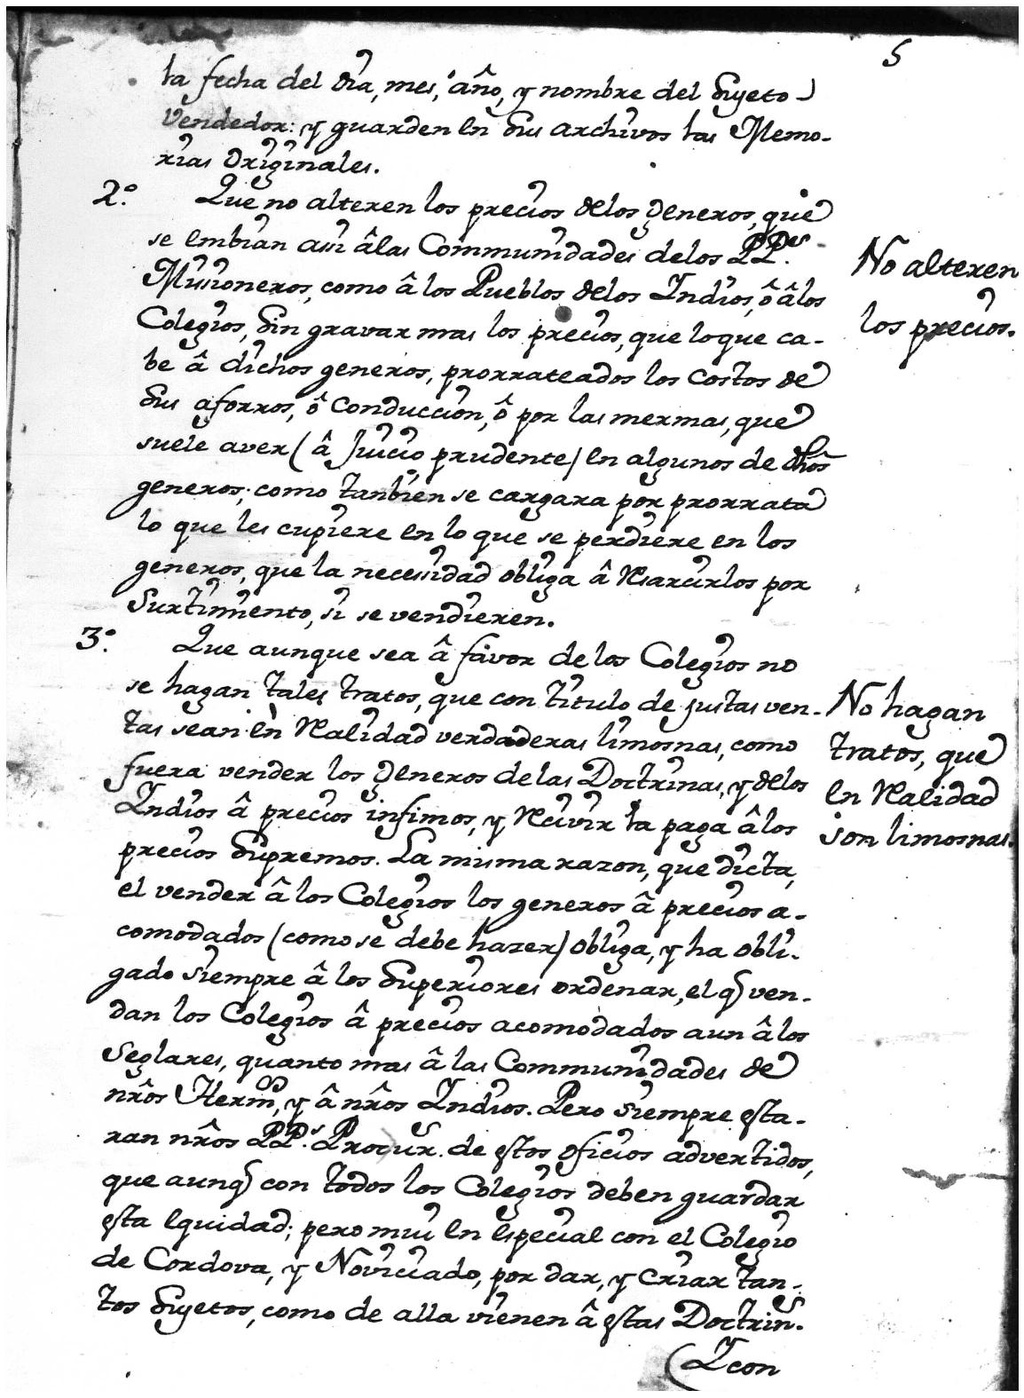 5
la fecha del dia, mes, año, y nombre del Sugeto
Vendedor: y guarden en sus archivos las Memo-
rias Originales.
2.º Que no alteren los precios delos generos, que
se embian assi âlas Communidades delos PP.es
Missioneros, como â los Pueblos delos Indios, ô âlos
Colegios, sin gravar mas los precios, que loque ca-
be â dichos generos, prorrateados los costos de
sus aforros, ô conduccion, ô por las mermas, que
suele aver (â Juicio prudente) en algunos de dhos
generos; como tanbien se cargara por prorrata
lo que les cupiere en lo que se perdiere en los
generos, que la necessidad obliga â Rsarcirlos por
Surtimiento, si se vendieren.
No alteren
los precios.
3.º Que aunque sea â favor de los Colegios no
se hagan tales tratos, que con titulo de justas ven-
tas sean en Realidad verdaderas limosnas, como
fuera vender los generos delas Doctrinas, y delos
Indios â precios infimos, y Recivir la paga âlos
precios supremos. La misma razon, que dicta,
el vender â los Colegios los generos â precios a-
comodados (como se debe hazer) obliga, y ha obli-
gado siempre â los Superiores ordenar, el q ven-
dan los Colegios â precios acomodados aun âlos
Seglares, quanto mas â las Communidades de
nrôs Herm.os, y â nrôs Indios. Pero siempre esta-
ran nrôs PP.s Procur.s de estos oficios advertidos,
que aunq con todos los Colegios deben guardar
esta equidad; pero mui en especial con el Colegio
de Cordova, y Noviciado, por dar, y criar tan-
tos Sugetos, como de alla vienen â estas Doctrin.s
No hagan
tratos, que
en Realidad
son limosnas.
I con